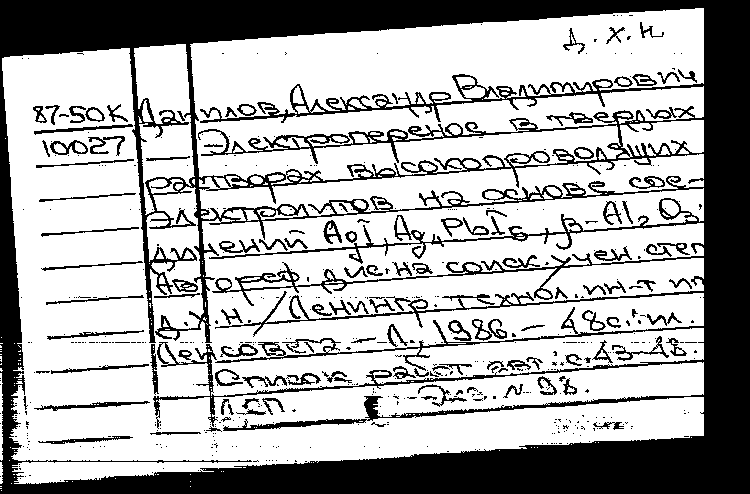 Д.Х.Н
87-50К Данилов, Александр Владимирович
10027 Электроперенос в твердых
растворах высокопроводящих
электролитов на основе сое-
динений AgI, Ag4PbI6, β-Al2O3:
Автореф. дис. на соиск. учен. степ
д.х.н. / Ленингр. технол. ин-т
Ленсовета. – Л., 1986. – 48с.: ил.
Список работ авт.: с. 43-48.
ДСП. Экз. N 98.